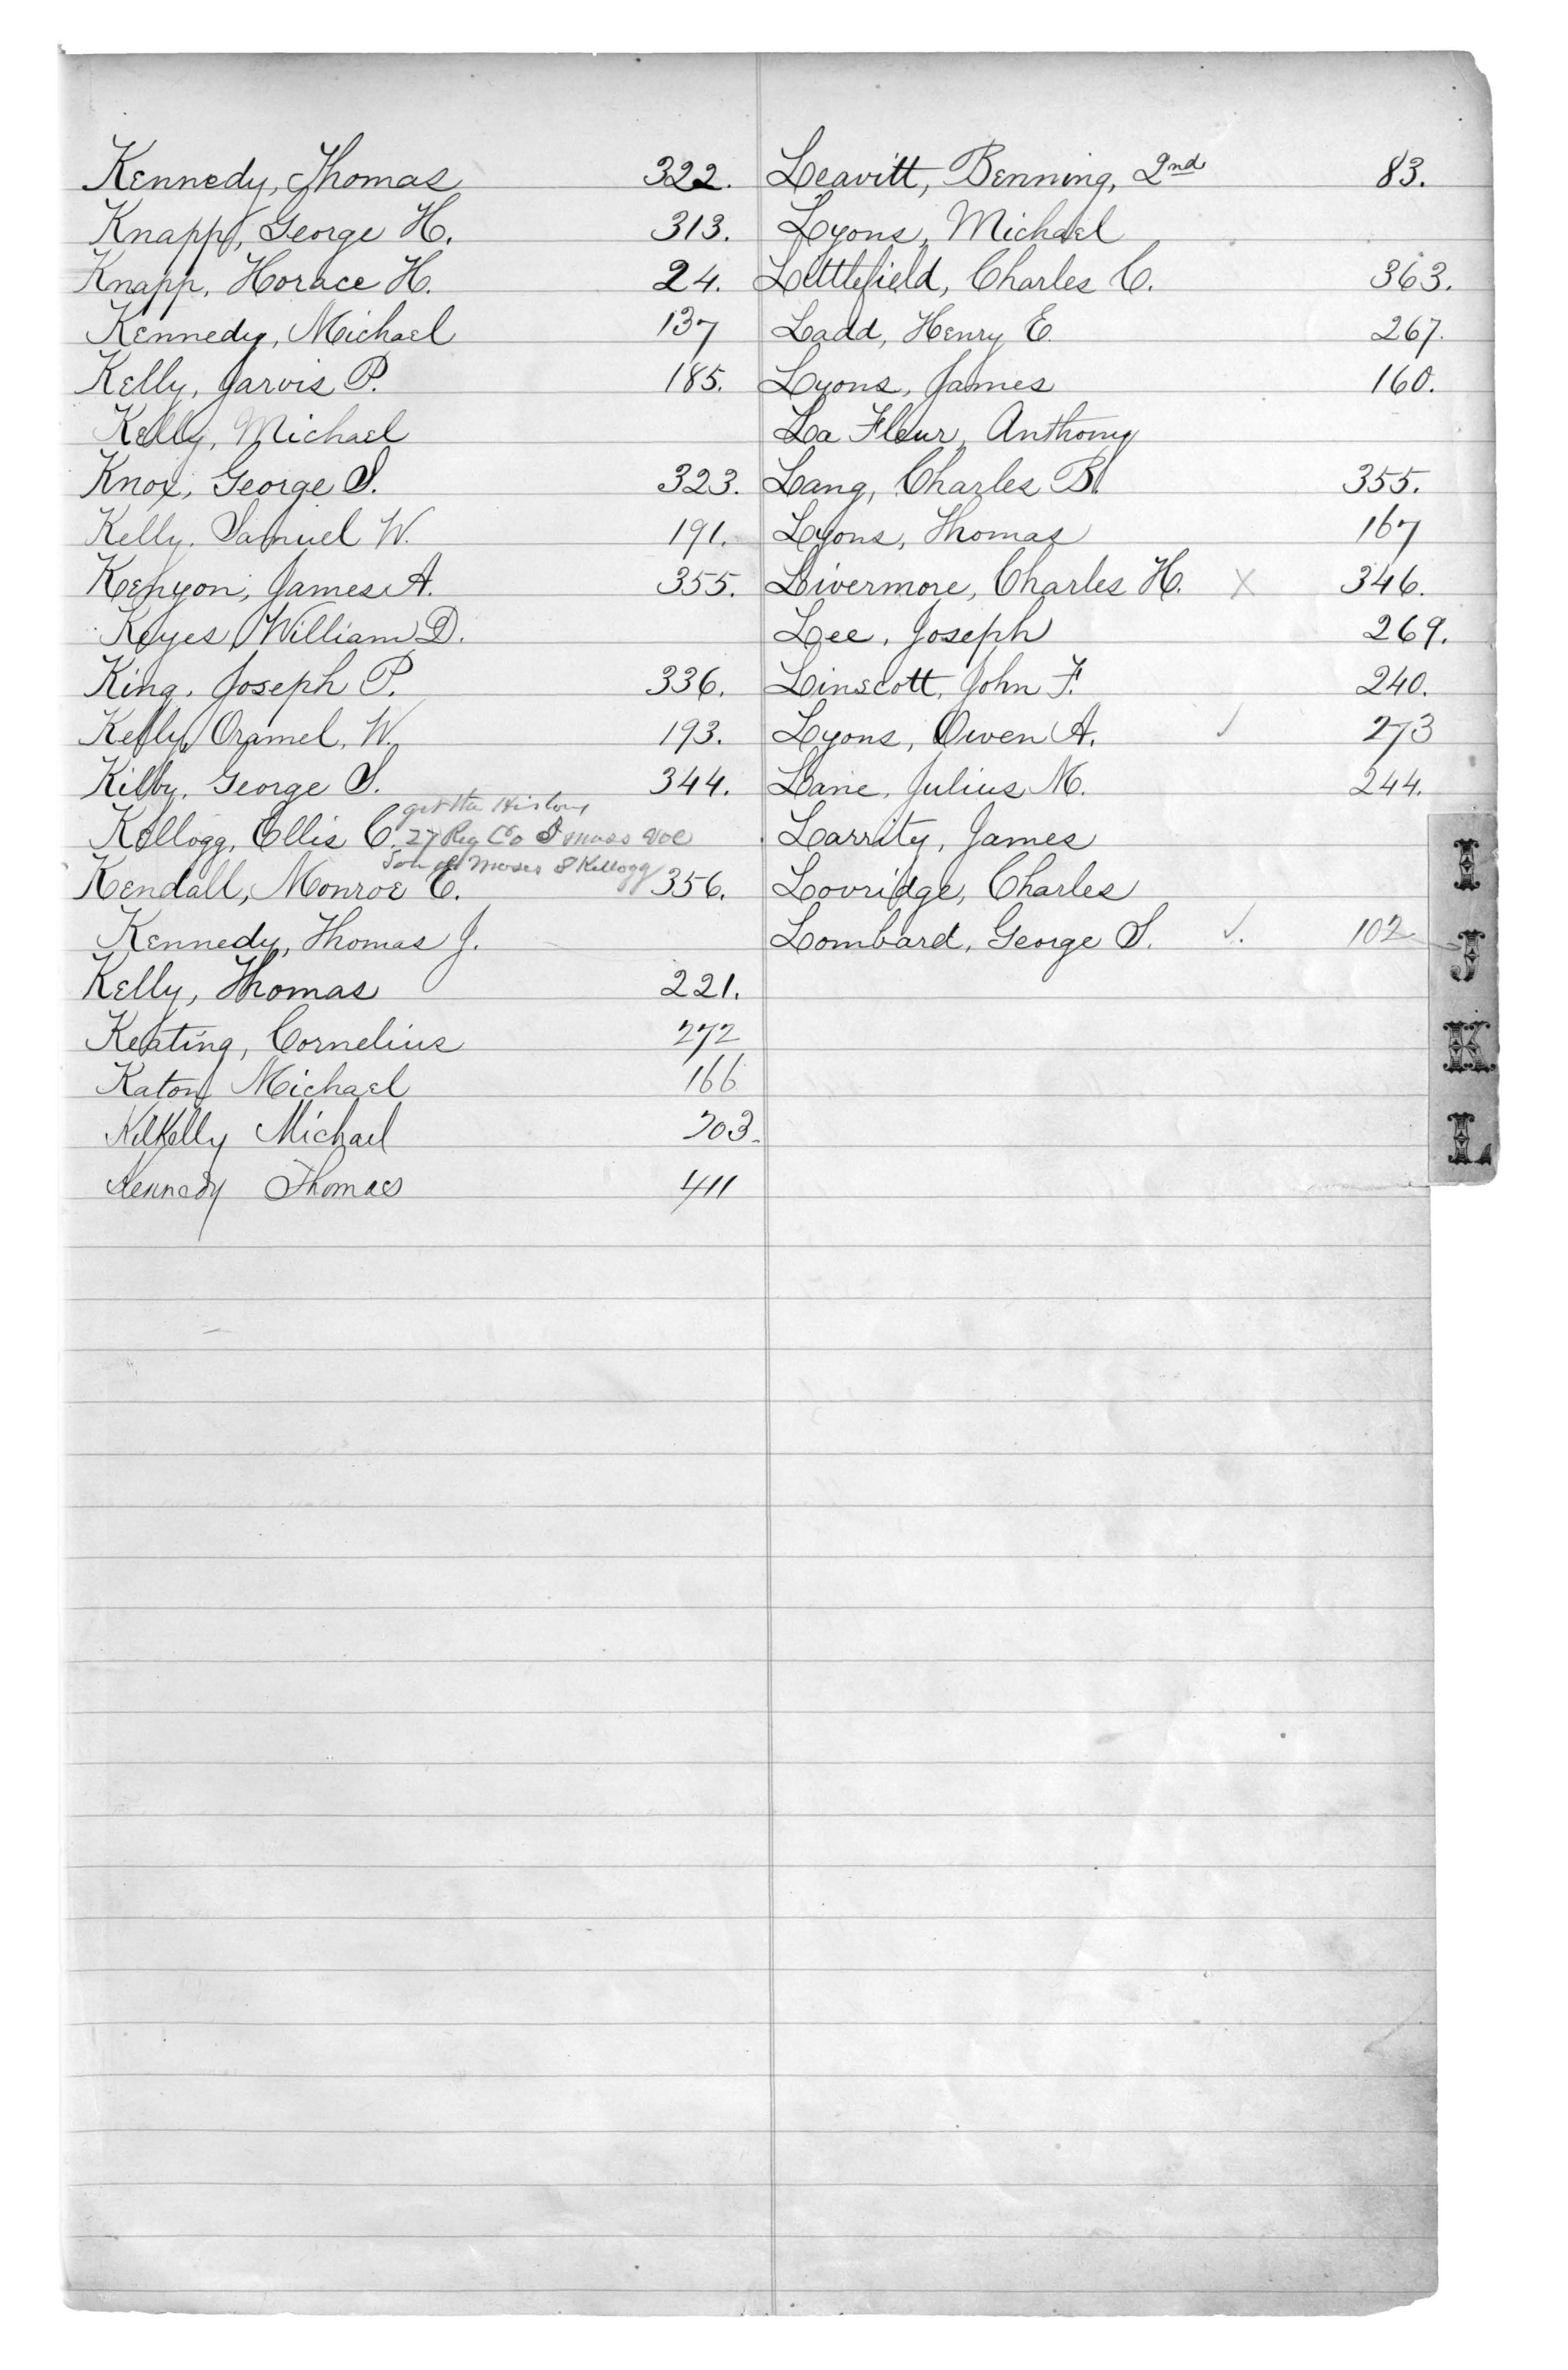 Kennedy, Thomas 322.
Knapp, George H. 313.
Knapp, Horace H. 24.
Kennedy, Michael 137
Kelly, Jarvis P. 185.
Kelly, Michael
Knox, George S. 323.
Kelly, Samuel W. 191.
Kenyon, James A. 355.
Keyes, William D.
King, Joseph P. 336.
Kelly, Oramel, W. 193.
Kilby, George S. 344.
get the History
Kellogg, Ellis C. 27 Reg Co I Mass Vol
Son of Moses S Kellogg
Kendall, Monroe C. 356.
Kennedy, Thomas J.
Kelly, Thomas 221.
Keating, Cornelius 272
Katon Michael 166
KilKelly Michael 703.
Kennedy Thomas 411
Leavitt, Benning, 2nd 83.
Lyons, Michael
Littlefield, Charles C. 363.
Ladd, Henry E. 267.
Lyons, James 160.
La Fleur, Anthony
Lang, Charles B. 355.
Lyons, Thomas 167
Livermore, Charles H. X 346.
Lee, Joseph 269.
Linscott, John F. 240.
Lyons, Owen A. ✓ 273
Lane, Julius M. 244.
Larrity, James
Lovridge, Charles
Lombard, George S. ✓. 102
I
J
K
L